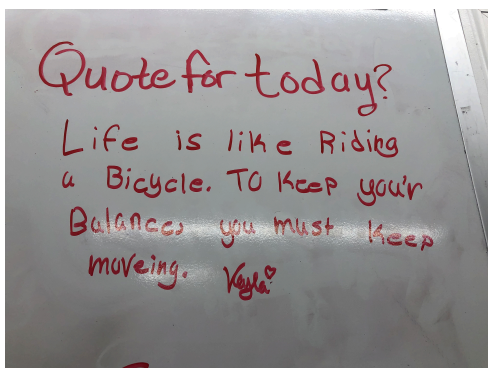 Quote for today?
Life is like Riding
a Bicycle. To Keep you'r
Balance, you must keep
moveing. Kayla